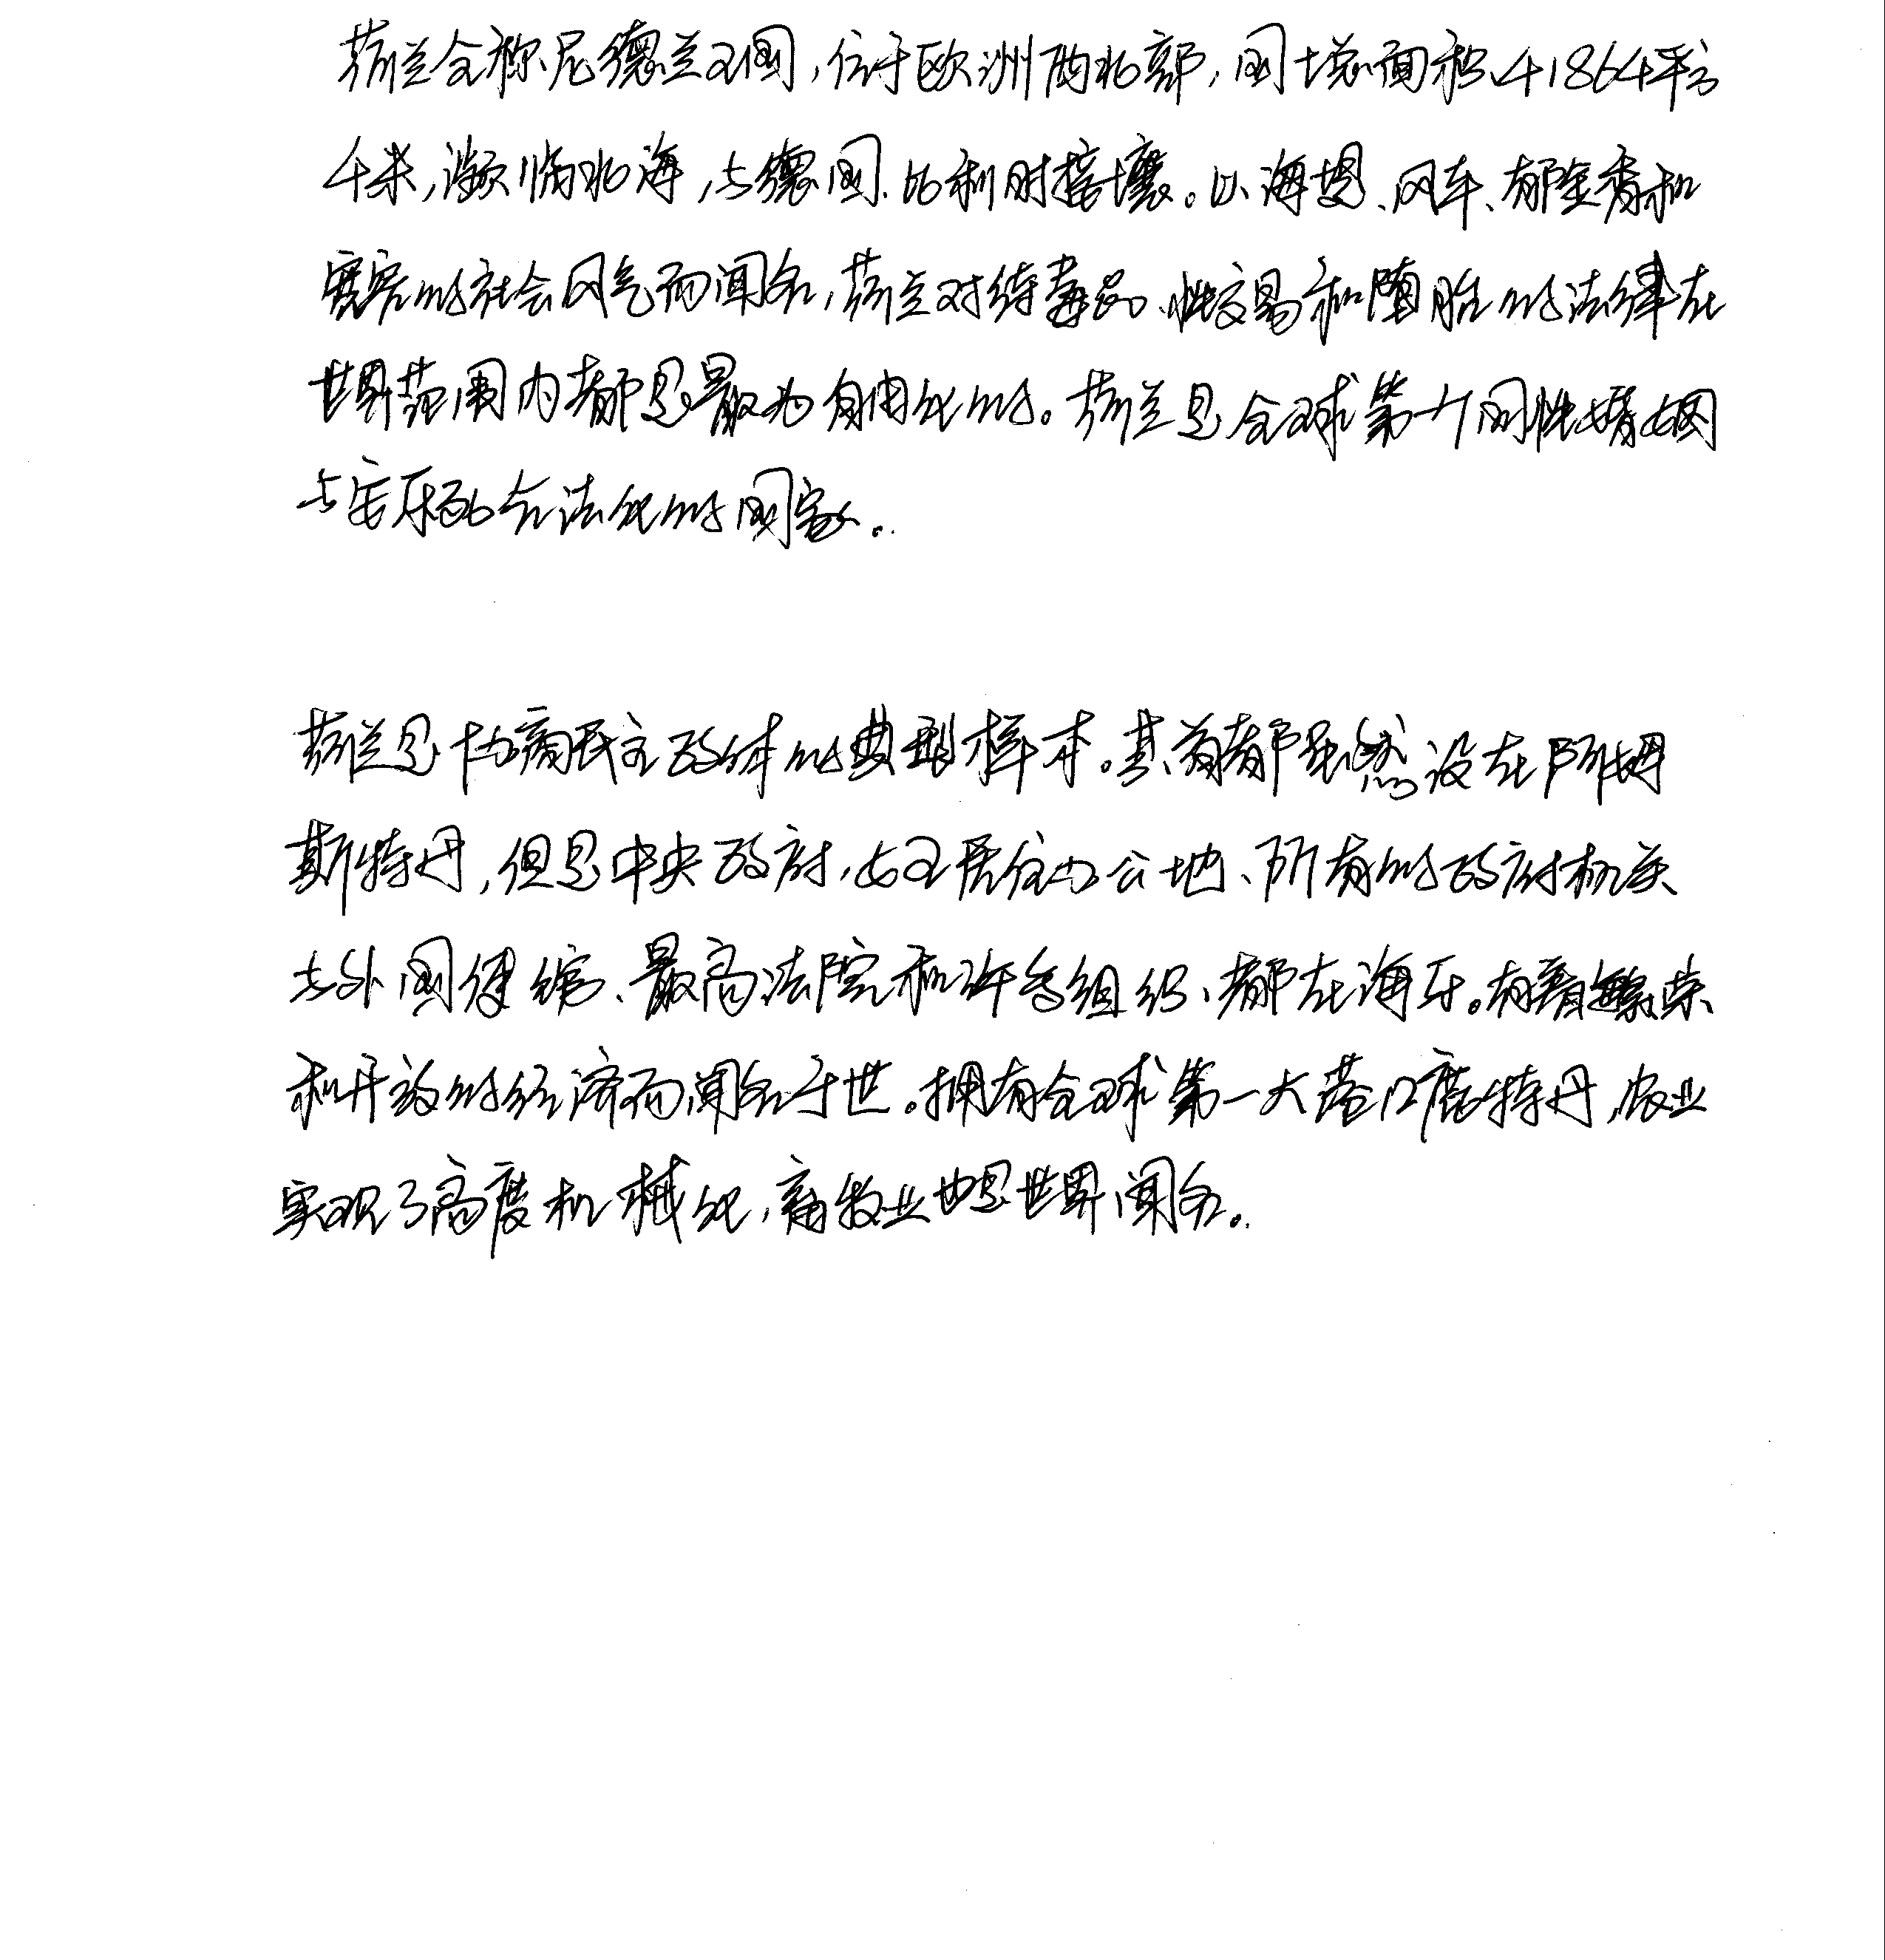 荷兰全称尼德兰王国,位于欧洲西北部,国土总面积41864平方
千米,濒临北海,与德国、比利时接壤。以海堤、风车、郁金香和
宽容的社会风气而闻名,荷兰对待毒品、性交易和堕胎的法律在
世界范围内都是最为自由化的。荷兰是全球第一个同性婚姻
与安乐死合法化的国家。
荷兰是协商民主政体的典型样本。其首都虽然设在阿姆
斯特丹,但是中央政府,女王居住办公地、所有的政府机关
与外国使馆、最高法院和许多组织、都在海牙。有着繁荣
和开放的经济而闻名于世。拥有全球第一大港口鹿特丹,农业
实现了高度机械化,畜牧业也是世界闻名。